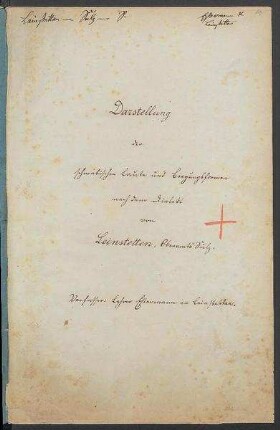 Leinstetten – Sulz – S.
Ehemann
Leinstetten
Darstellung
der
schwäbischen Laute und Biegungsformen
nach dem Dialekt
von
Leinstetten, Oberamts Sulz.
Verfasser: Lehrer Ehemann in Leinstetten.